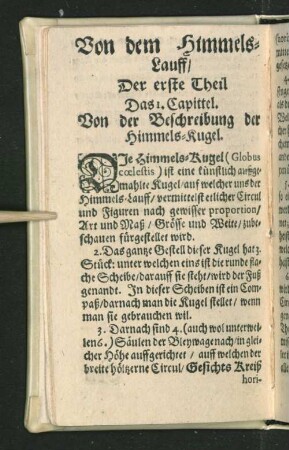 Von dem Himmels-
Lauff/
Der erste Theil
Das 1. Capittel.
Von der Beschreibung der
Himmels-Kugel.
DIe Himmels-Kugel (Globus
cœlestis) ist eine künstlich auffge-
mahlte Kugel/ auf welcher uns der
Himmels-Lauff/ vermittelst etlicher Circul
und Figuren nach gewisser proportion/
Art und Maß/ Grösse und Weite/ zube-
schauen fürgestellet wird.
2. Das gantze Gestell dieser Kugel hat 3.
Stück: unter welchen eins ist die runde fla-
che Scheibe/ darauff sie steht/ wird der Fuß
genandt. In dieser Scheiben ist ein Com-
paß/ darnach man die Kugel stellet/ wenn
man sie gebrauchen wil.
3. Darnach sind 4. (auch wol unterwei-
len 6.) Säulen der Bleywage nach/ in glei-
cher Höhe auffgerichtet/ auff welchen der
breite höltzerne Circul/ Gesichts Kreiß
hori-